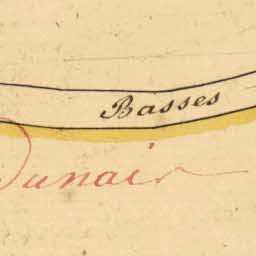 Basses
Dunair